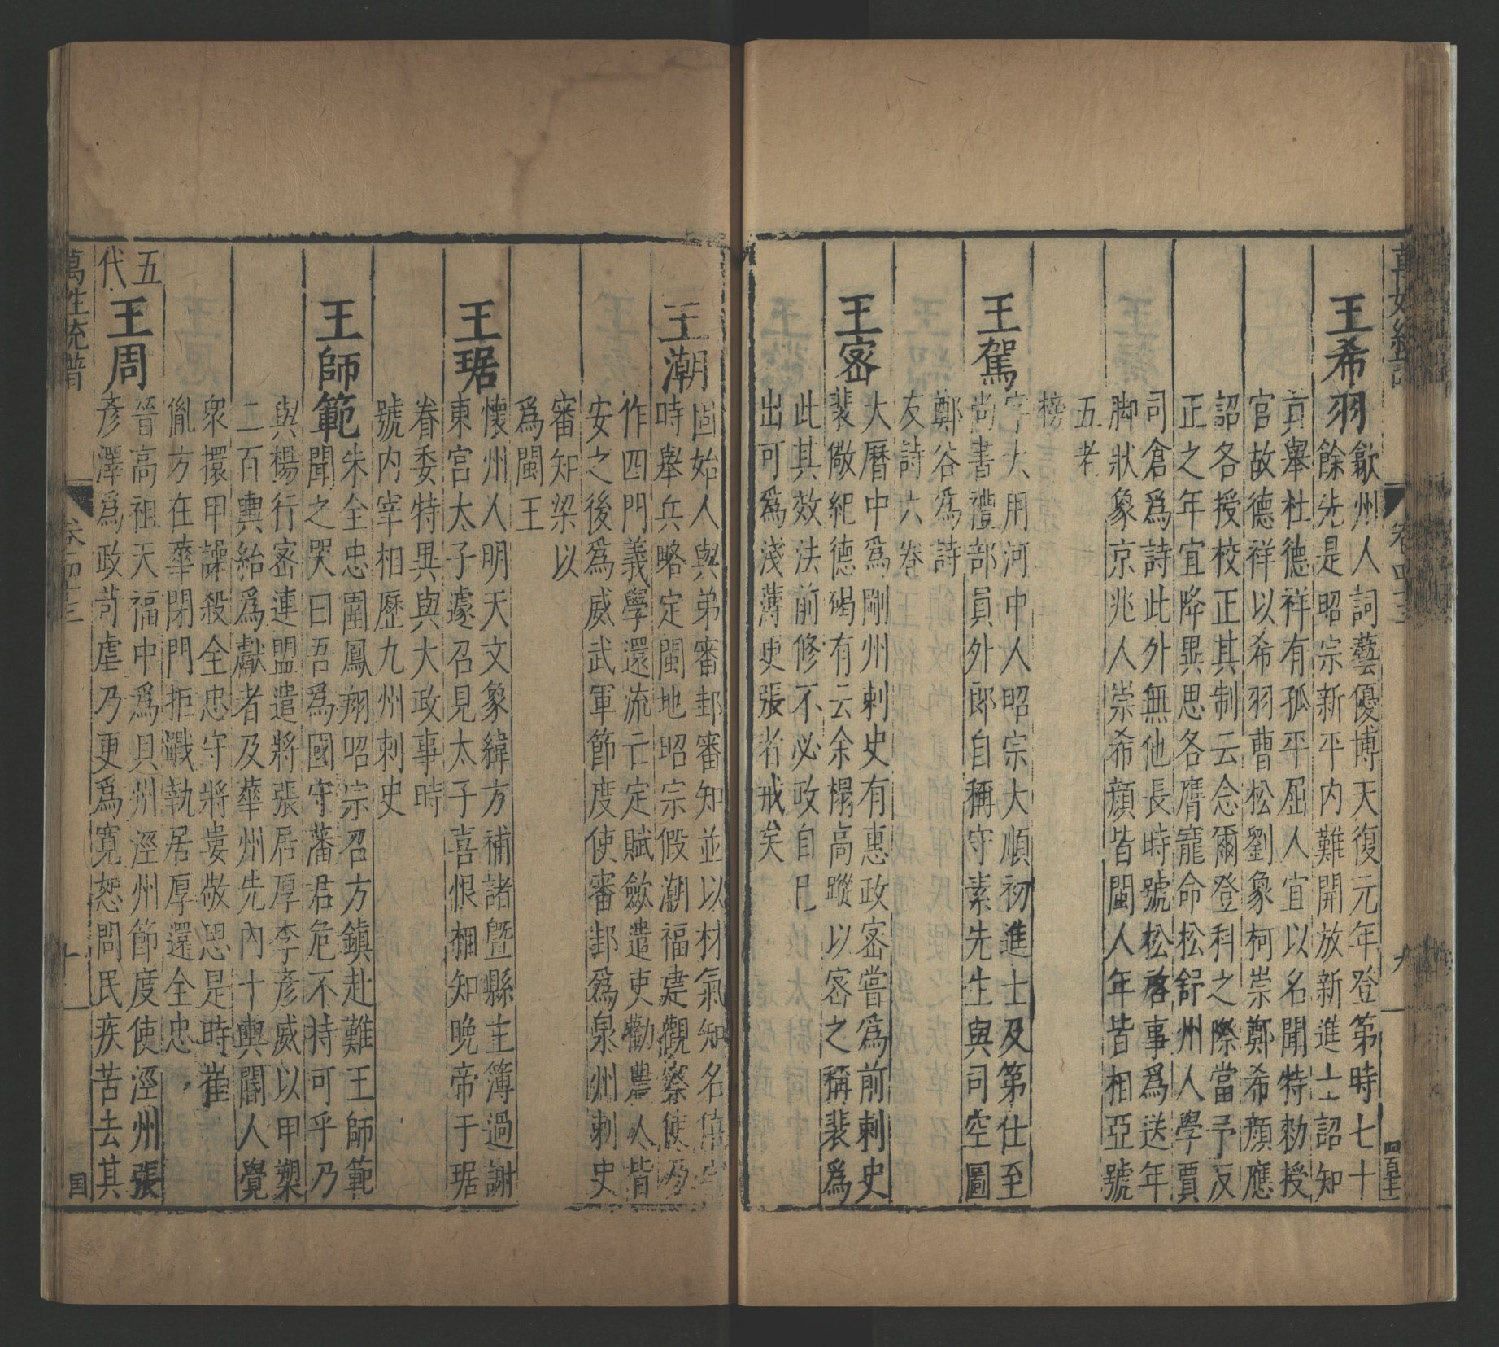 王希羽歙州人詞藝優博天復元年登第時七十
餘先是昭宗新平内難開放新進士詔知
貢舉杜德祥有孤平屈人宜以名聞特勑授
官故德祥以希羽曹松劉象柯崇鄭希顔應
詔各授校正其制云念爾登科之際當予反
正之年宜降異恩各膺寵命松舒州人學賈
司倉爲詩此外無他長時號松啓事爲送年
脚狀象京兆人崇希顔皆閩人年皆相亞號
五老
榜
王駕字大用河中人昭宗大順初進士及第仕至
尚書禮部員外郎自稱守素先生與司空圖
鄭谷爲詩
友詩六卷
王密大曆中爲剛州刺史有惠政密嘗爲前刺史
裴儆紀德碣有云余榻高蹤以密之稱裴爲
此其效法前修不必政自已
出可爲淺薄更張者戒矣
王潮固始人與弟審邽審知並以材氣知名
時舉兵略定閩地昭宗假潮福建觀察使乃
作四門義學還流亡定賦斂遣吏勸農人皆
安之後爲威武軍節度使審邽爲泉州刺史
審知梁以
爲閩王
王琚懷州人明天文象緯方補諸曁縣主簿過謝
東宮太子遽召見太子喜恨相知晚帝于琚
眷委特異與大政事時
號内宰相歷九州刺史
王師範朱全忠圍鳳翔昭宗召方鎭赴難王師範
聞之哭曰吾爲國守藩君危不持可乎乃
與楊行密連盟遣將張居厚李彥威以甲槊
二百輿紿爲獻者及華州先内十輿閽人覺
衆擐甲譟殺全忠守將婁敬思是時崔
胤方在華閉門拒戰執居厚還全忠
五代
王周晉高祖天福中爲貝州涇州節度使涇州張
彥澤爲政苛虐乃更爲寛恕問民疾苦去其
萬姓統譜
卷四十三